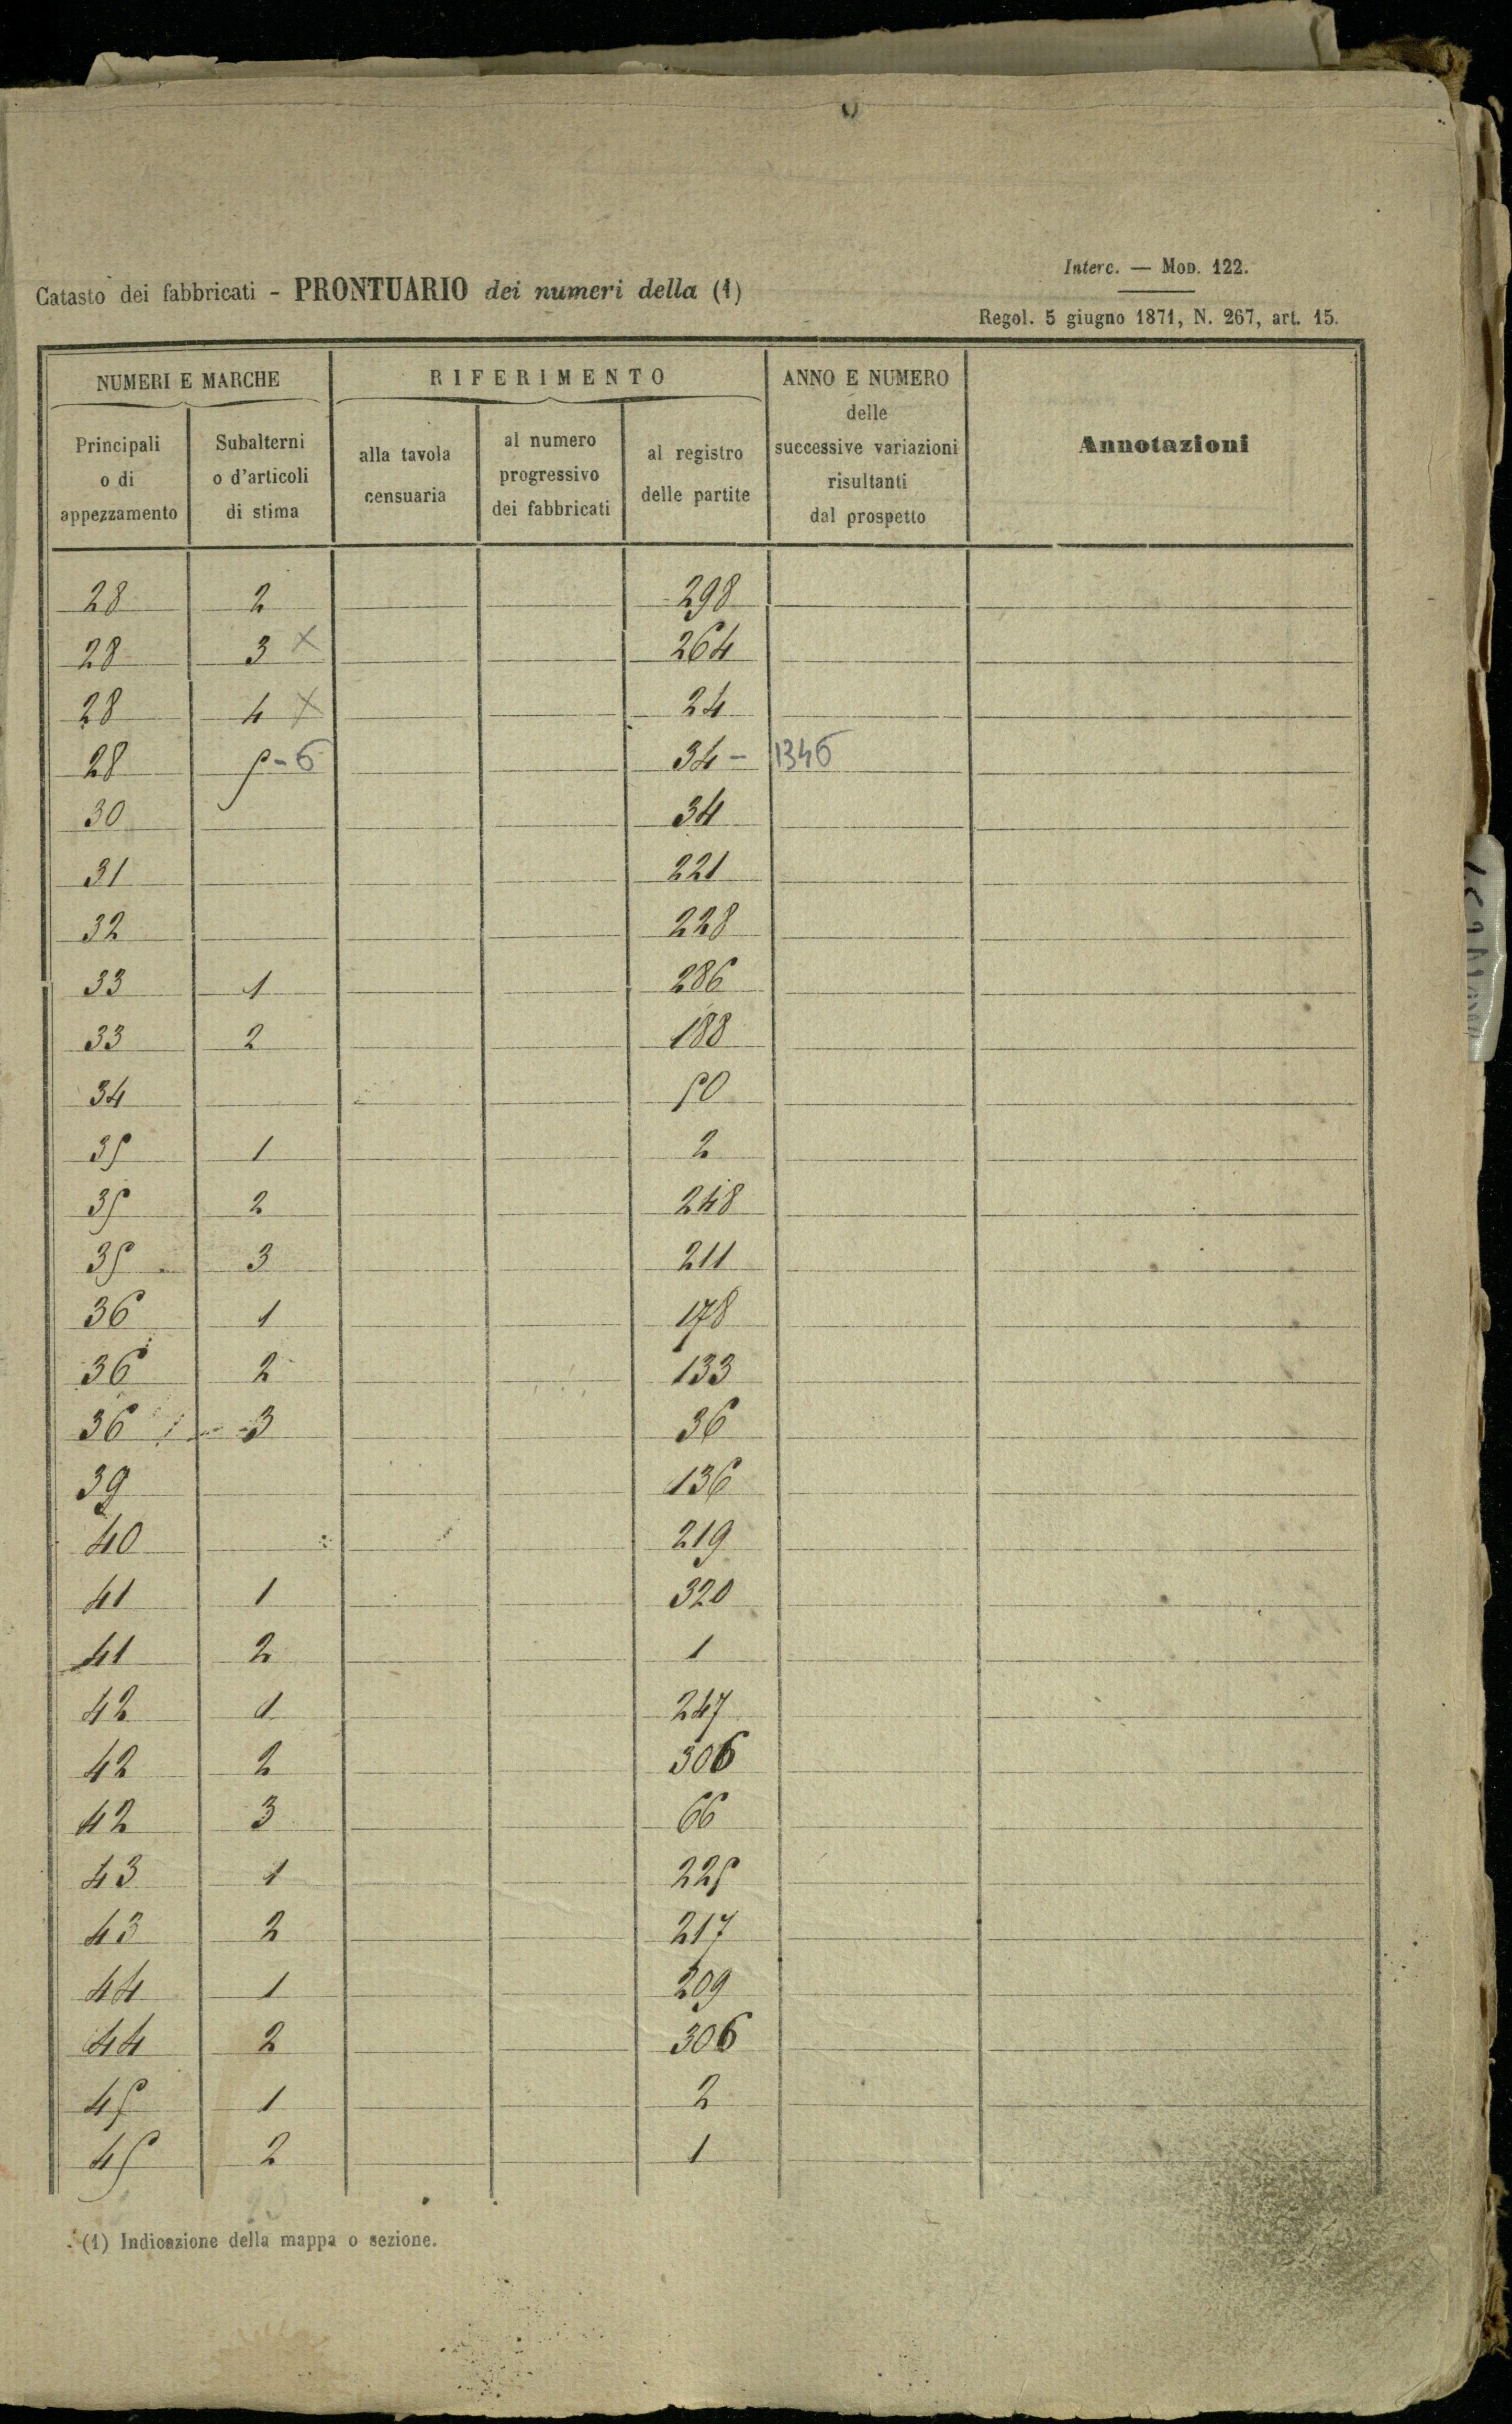 Interc. — Mod. 122.
Catasto dei fabbricati - PRONTUARIO dei numeri della (1)
Regol. 5 giugno 1871, N. 267, art. 15.
NUMERI E MARCHE RIFERIMENTO ANNO E NUMERO delle successive variazioni risultanti dal prospetto Annotazioni
Principali o di appezzamento Subalterni o d'articoli di stima alla tavola censuaria al numero progressivo dei fabbricati al registro delle partite
28 2 298
28 3 X 264
28 4 X 24
28 5-6 34 - 1346
30 34
31 221
32 228
33 1 286
33 2 188
34 50
35 1 2
35 2 248
35 3 211
36 1 178
36 2 133
36 3 36
39 136
40 219
41 1 320
41 2 1
42 1 247
42 2 306
42 3 66
43 1 225
43 2 217
44 1 209
44 2 306
45 1 2
45 2 1
(1) Indicazione della mappa o sezione.